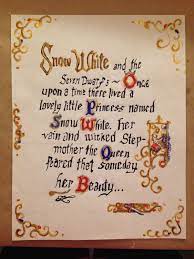 Snow White and the
Seven Dwarfs ~ Once
upon a time there lived a
lovely little Princess named
Snow White. Her
vain and wicked Step-
mother the Queen
feared that someday
her Beauty...